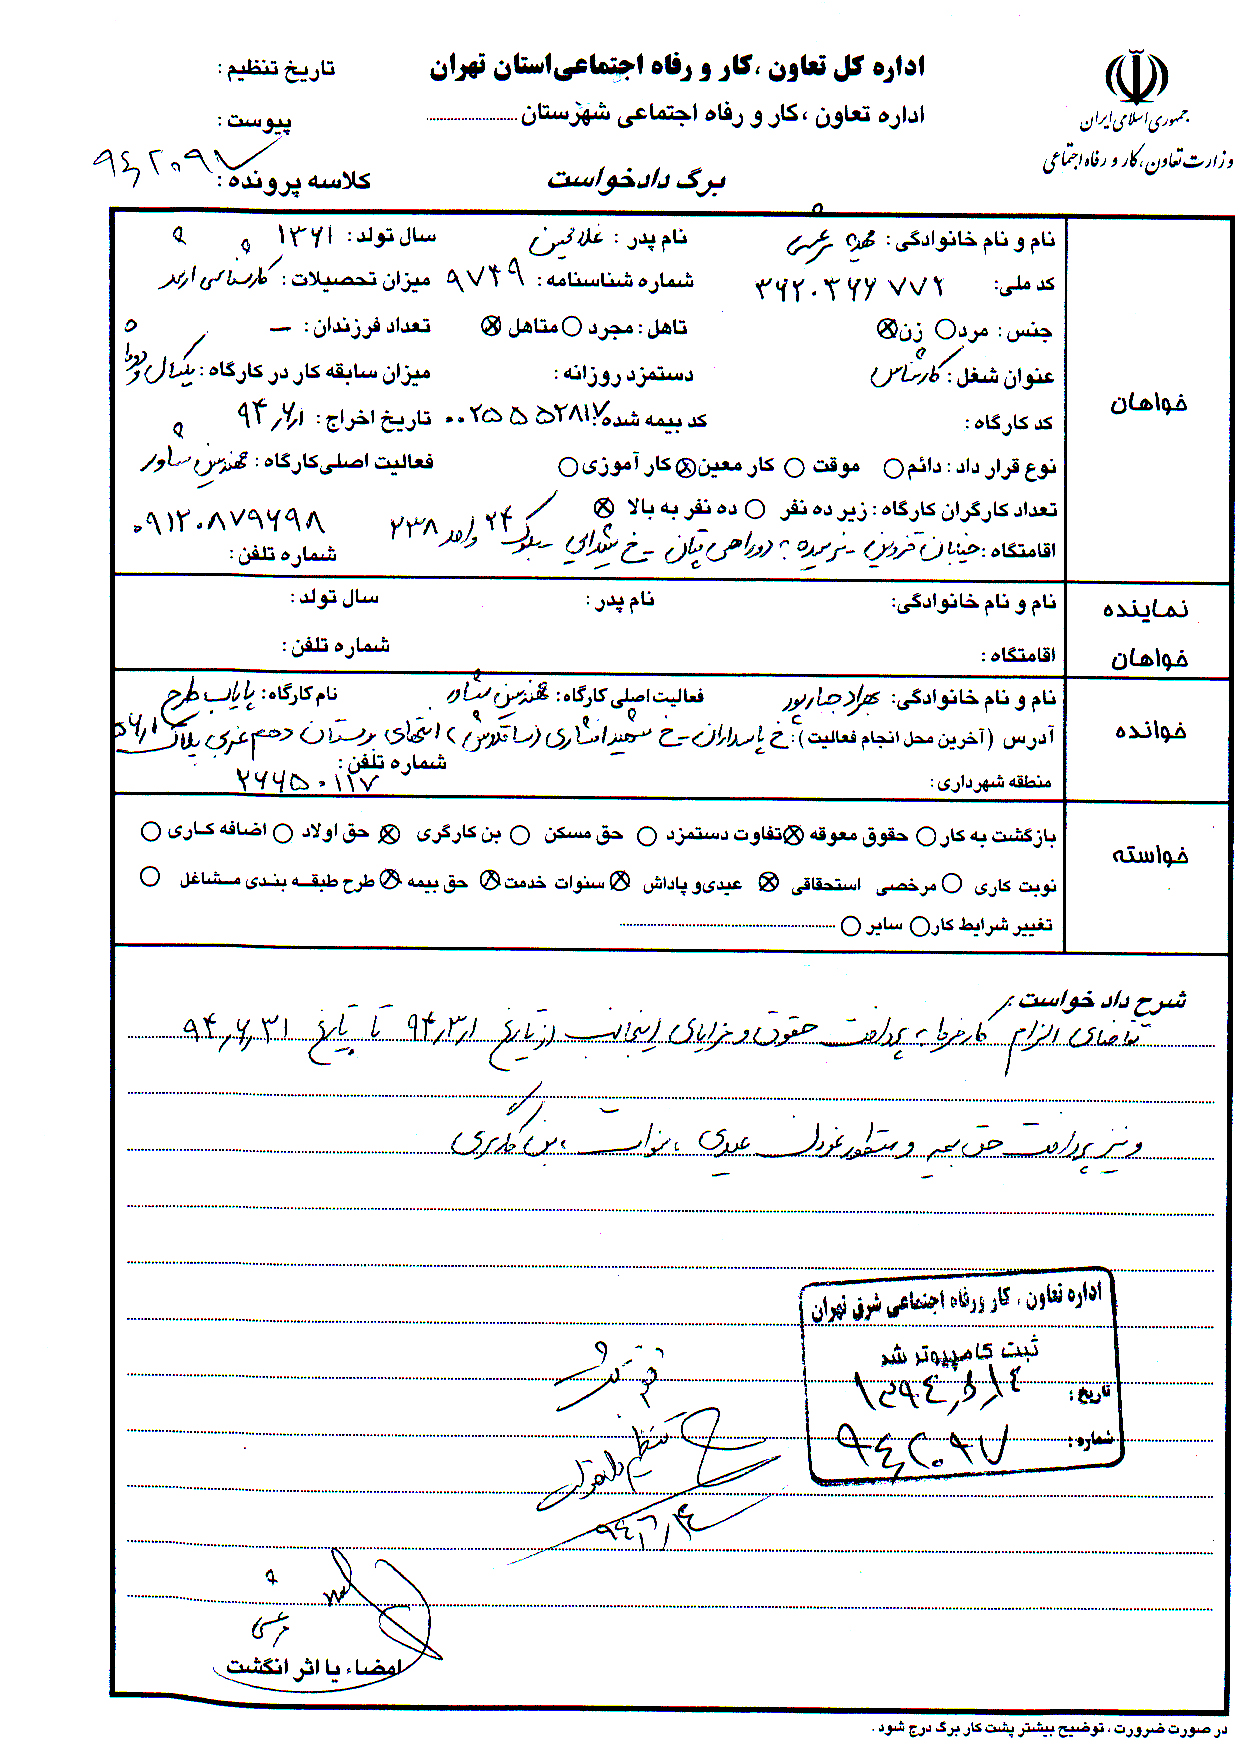 جمهوری اسلامی ایران
وزارت تعاون، کار و رفاه اجتماعی
اداره کل تعاون ،کار و رفاه اجتماعی استان تهران
اداره تعاون ،کار و رفاه اجتماعی شهرستان
برگ دادخواست
تاریخ تنظیم :
پیوست :
کلاسه پرونده : ۹۴۲۰۹۷
خواهان
نام و نام خانوادگی: نام پدر : غلامحسین سال تولد: ۱۳۶۱
کد ملی: شماره شناسنامه: ۹۷۴۹ میزان تحصیلات : کارشناسی ارشد
جنس : مرد زن تاهل : مجرد متاهل تعداد فرزندان : –
عنوان شغل : کارشناس دستمزد روزانه : میزان سابقه کار در کارگاه : یکسال و دو ماه
کد کارگاه : کد بیمه شده: ۰۰۲۵۵۵۲۸۱۷ تاریخ اخراج : ۹۴,۶,۱
نوع قرار داد : دائم موقت کار معین کار آموزی فعالیت اصلی کارگاه : مهندسین مشاور
تعداد کارگران کارگاه : زیر ده نفر ده نفر به بالا
اقامتگاه : خیابان قزوین - نرسیده به دوراهی قپان - خ - بلوک ۲۴ واحد ۲۳۸ شماره تلفن : ۰۹۱۲۰۸۷۹۶۹۸
نماینده خواهان
نام و نام خانوادگی: نام پدر : سال تولد :
اقامتگاه : شماره تلفن :
خوانده
نام و نام خانوادگی: بهزاد فعالیت اصلی کارگاه : مهندسین مشاور نام کارگاه : پایاب طرح
آدرس (آخرین محل انجام فعالیت) : خ پاسداران - خ شهید انتهای بوستان دهم غربی پلاک
منطقه شهرداری : شماره تلفن : ۲۶۶۵۰۱۱۷
خواسته
بازگشت به کار حقوق معوقه تفاوت دستمزد حق مسکن بن کارگری حق اولاد اضافه کاری
نوبت کاری مرخصی استحقاقی عیدی و پاداش سنوات خدمت حق بیمه طرح طبقه بندی مشاغل
تغییر شرایط کار سایر
شرح دادخواست :
تقاضای الزام کارفرما به پرداخت حقوق و مزایای اینجانب از تاریخ ۹۴,۳,۱ تا تاریخ ۹۴,۶,۳۱
و نیز پرداخت حق بیمه و منظور نمودن عیدی ، سنوات ، بن کارگری
اداره تعاون ، کار و رفاه اجتماعی شرق تهران
ثبت کامپیوتر شد
تاریخ : ۱۳۹۴,۶,۱۴
شماره : ۹۴۲۰۹۷
امضاء یا اثر انگشت
در صورت ضرورت ، توضیح بیشتر پشت کار برگ درج شود .